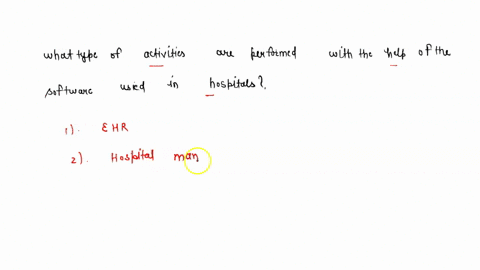 what type of activities are performed with the help of the
software used in hospitals?.
1). EHR
2). Hospital man